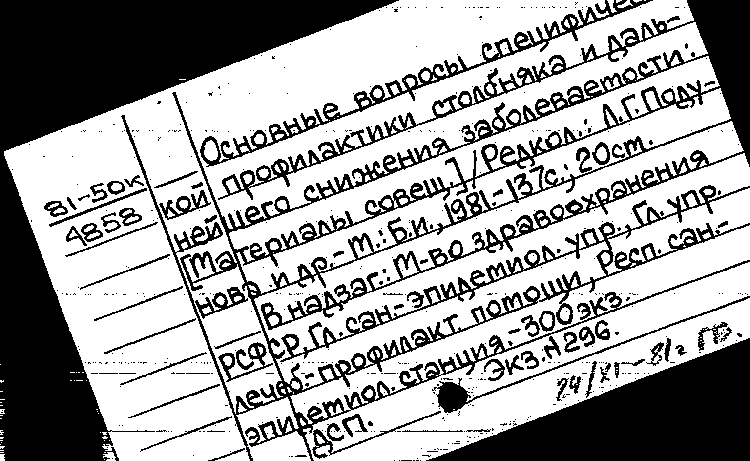 81-50к
4858
Основные вопросы специфичес
кой профилактики столбняка и даль-
нейшего снижения заболеваемости:
[Материалы совещ.] / Редкол.: Л.Г. Полу-
нова и др.- М.: Б.и., 1981.-137с.; 20см.
В надзаг.: М-во здравоохранения
РСФСР, Гл. сан.-эпидемиол. упр., Гл. упр.
лечеб.-профилакт. помощи, Респ. сан.-
эпидемиол. станция.-300экз.
ДСП. Экз.N296.
24/XI-81г